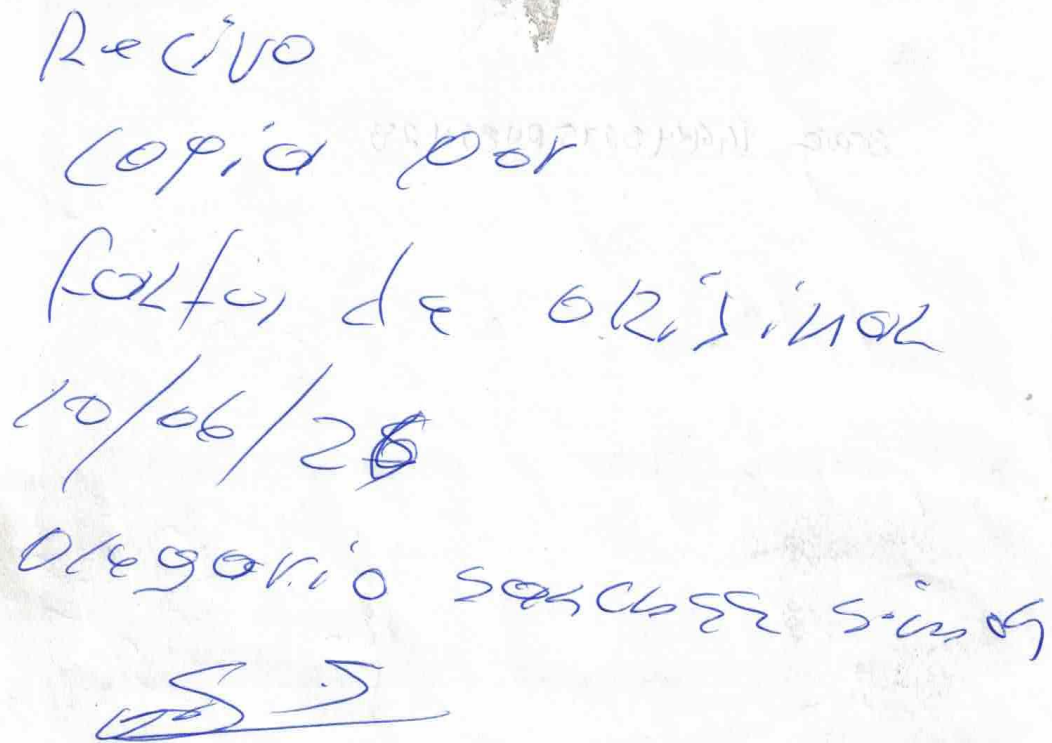 Recivo
copia por
falta de orijinal
10/06/26
Olegario Sanchez